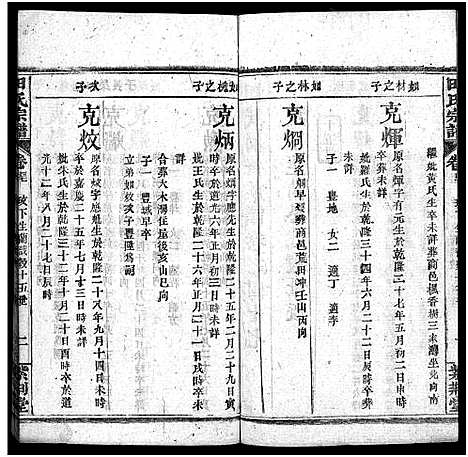 田氏宗譜
紫荊堂
繼妣黃氏生卒未詳葬商邑楓香樹三未灣坐北向南
如林之子
克煇
原名煇字有元生於乾隆三十七年五月初二日時卒
未詳
如林之子
克烱
妣熊氏生於乾隆三十四年六月二十二日時
卒未詳葬商邑荒田冲壬山丙向
子一 豊地 女二 適丁 適李
如槐之子
克炳
原名炳字應元生於乾隆二十五年二月二十九日寅
時卒於道光六年正月初三日時未詳
妣王氏生於乾隆二十六年正月二十一日戌時卒未
詳
合葬大水灣住屋後亥山巳向
子一 豊城早卒
立弟如炆次子豊隆爲嗣
次子
克炆
原名炆字慰元生於乾隆二十八年九月十四日時
卒於嘉慶二十五年七月十三日時未詳
妣朱氏生於乾隆三十二年十月二十日酉時卒於道
光十二年八月二十七日辰時
田氏宗譜
紫荊堂